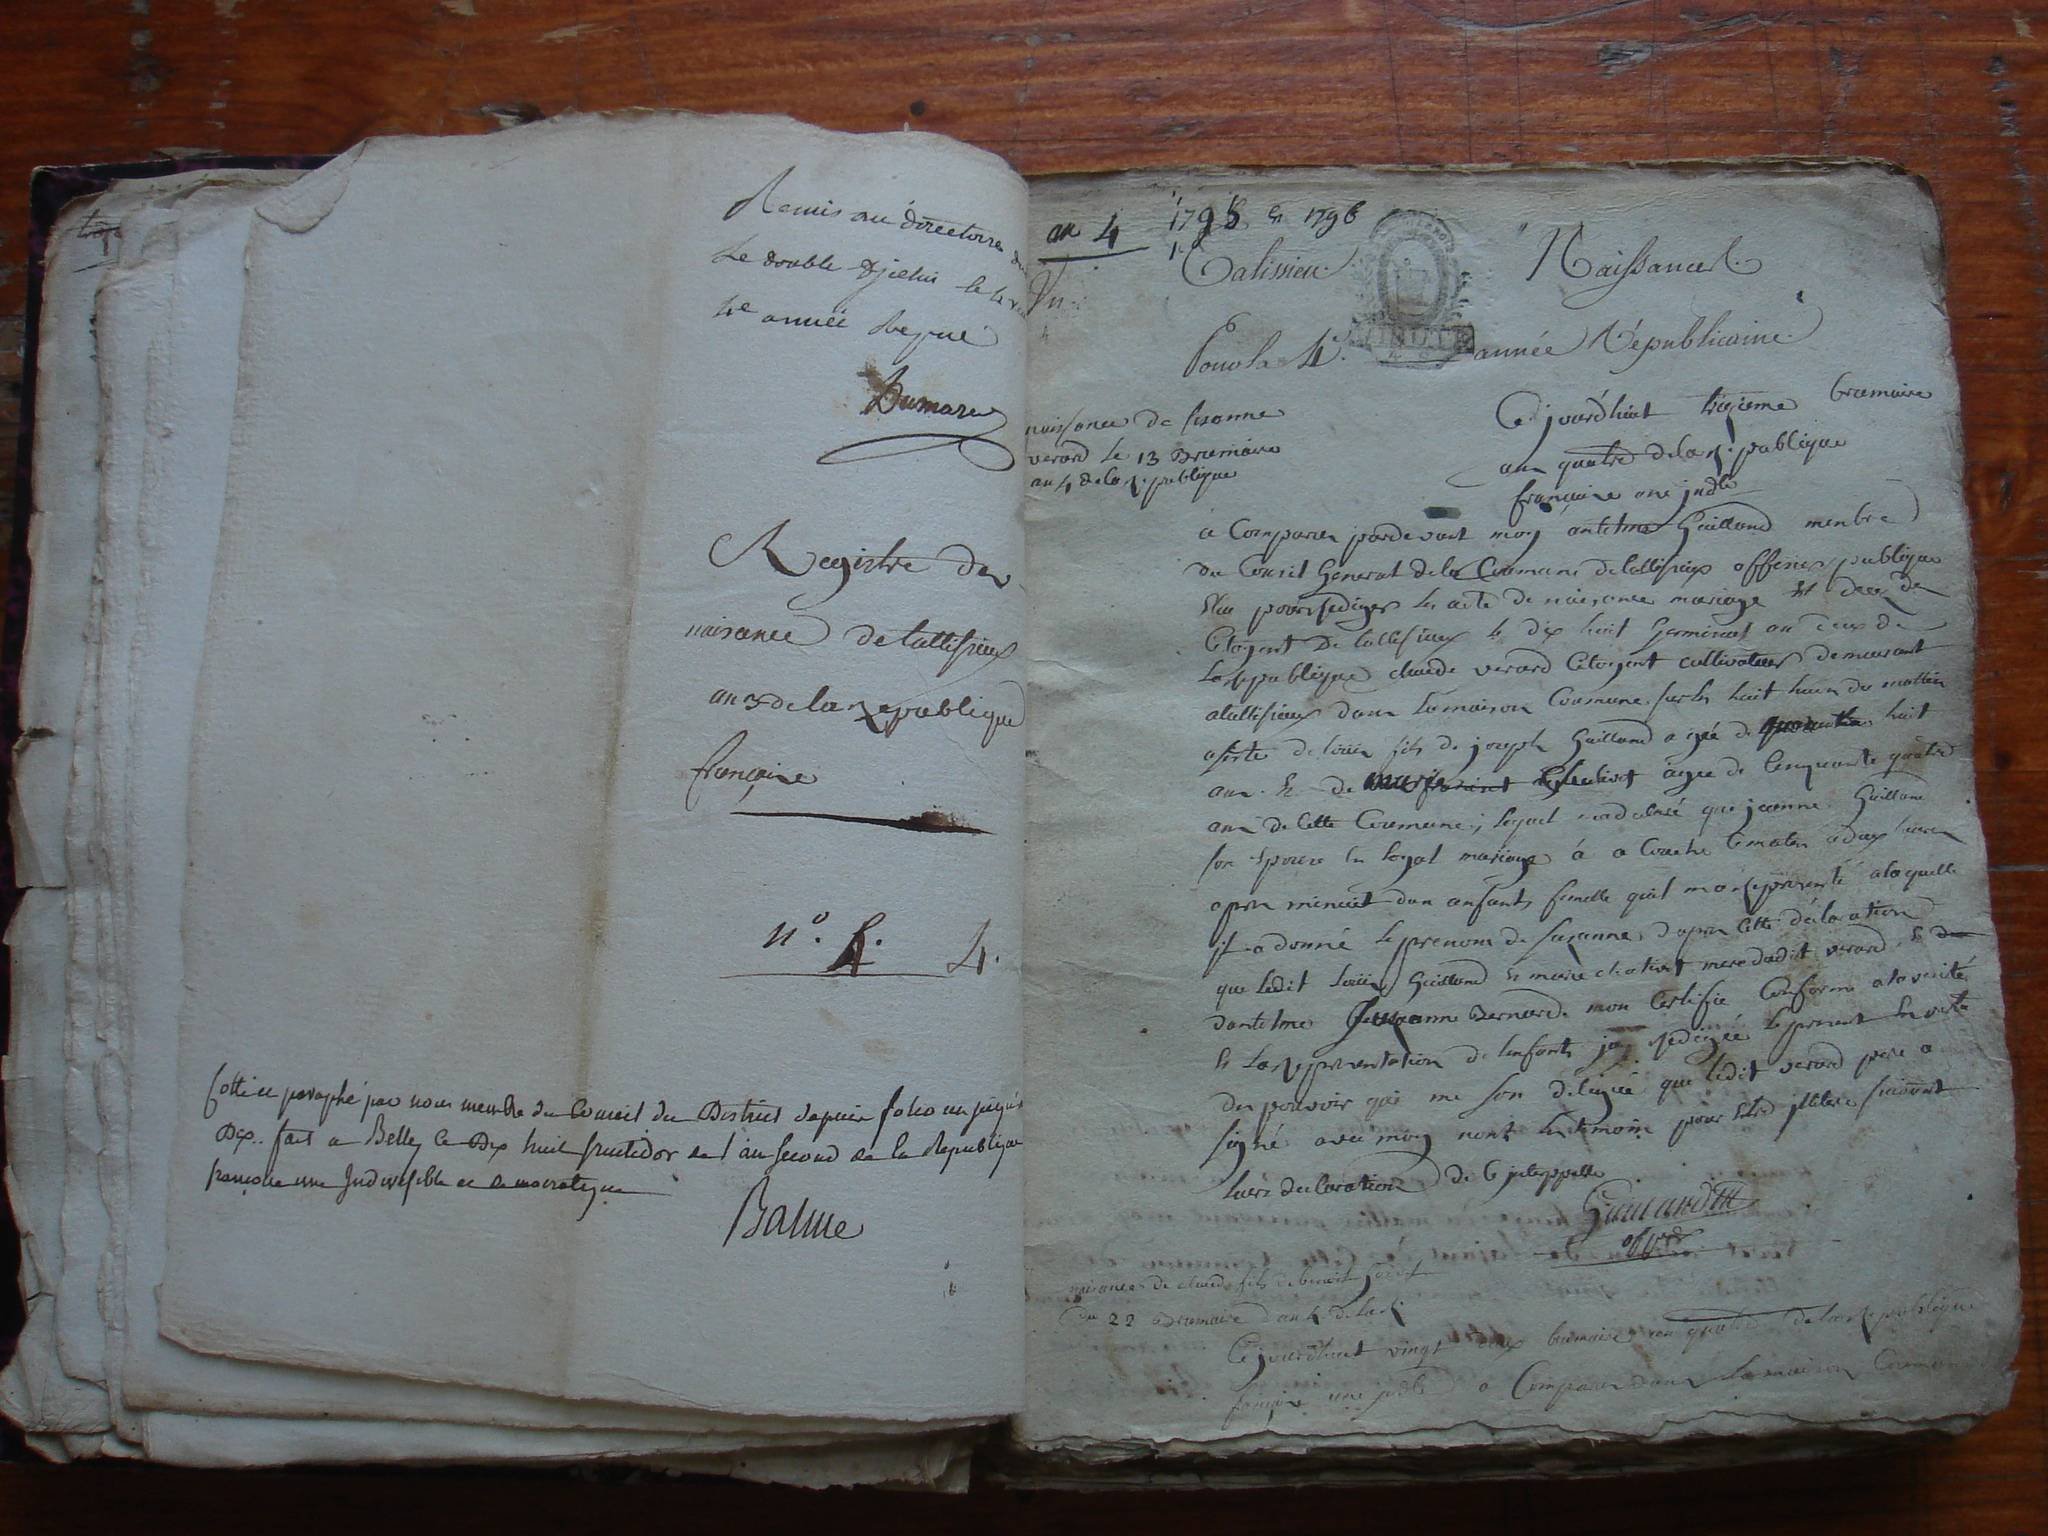 Remis au directoire du
Le double Djielui le 4
4e année Repue
Dumare
Registre de
naisance de tallisieux
an 3 de la republique
françaize
n°. 4. 4.
Cotté et paraphé par nous membre du Conseil du District depuis folio un jusqu'à
Dix.. fait a Belley ce Dix huit fructidor de l'an second de la Republique
françoise une Indivisible et democratique
Balme
an 4 1795 et 1796
Talissieu. Naissances.
MINUTE
Pour la 4e. année Républicaine.
naissance de susanne
verard le 13 Brumaire
an 4 de la republique
Ce jourd'huit trizieme brumaire
ans quatre de la republique
françaize une indle
a Comparu pardevant moy antelme Guilland menbre
du Conseil General de la Commune de tallisieux officier publique
Elu pour rediger les acte de naisance mariage et decez de
Citoyent De tallisieux le dix huit Germinal an deux de
La republique claude verard Citoyent cultivateur demeurant
a tallisieux dans la maison Commune sur les huit heure du mattin
asisté de loüis fils de joseph Guilland agée de huit
ans. et de marie agée de Cinquante quatre
ans de Cette Commune, lequel m'a declaré que jeanne Guilland
son epouze en legal mariage à acouché ce matin a deux heure
apres minuit d'un anfants femelle qu'il m'a representé a laquelle
il a donné le prenom de suzanne, d'apres Cette déclaration
que ledit loüis Guilland et marie chativet verard, et
d'antelme Bernard. mon Certifie Conforme a la verité
et La representation de l'enfants jay redigée le present En vertu
des pouvoir qui me son delegué que ledit verard pere a
signé avec moy nont les temoin pour Etre illitere suivant
leurs declaration de ce interppellé
Guilland
offier
naisance de claude fils de benoit
du 22 Brumaire d'an 4 de la R.
Ce jourd'huit vingt deux brumaire an quatre de la republique
françaize une indle a Comparu dans La maison Commune